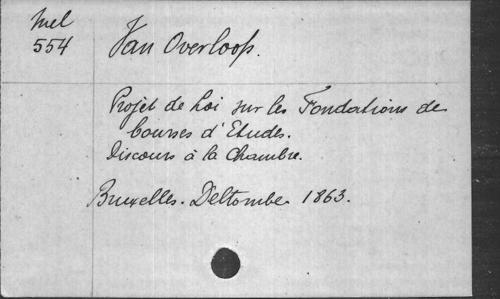 Mel
554
Van Overloop.
Projet de Loi sur les Fondations de
bourses d'Etudes.
Discours à la Chambre.
Bruxelles. Deltombe 1863.